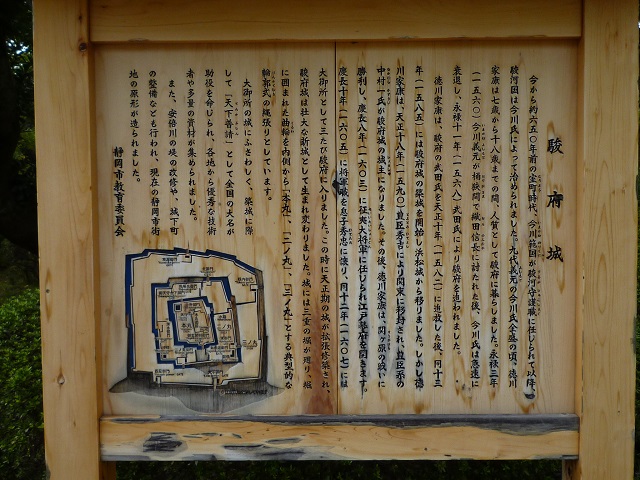 駿府城
今から約六五〇年前の室町時代、今川範国が駿河守護職に任じられて以降、
駿河国は今川氏によって治められました。九代義元の今川氏全盛の頃、徳川
家康は七歳から十八歳までの間、人質として駿府に暮らしました。永禄三年
（一五六〇）今川義元が桶狭間で織田信長に討たれた後、今川氏は急速に
衰退し、永禄十一年（一五六八）武田氏により駿府を追われました。
徳川家康は、駿府の武田氏を天正十年（一五八二）に追放した後、同十三
年（一五八五）には駿府城の築城を開始し浜松城から移りました。しかし徳
川家康は、天正十八年（一五九〇）豊臣秀吉により関東に移封され、豊臣系の
中村一氏が駿府城の城主になりました。その後、徳川家康は、関ヶ原の戦いに
勝利し、慶長八年（一六〇三）に征夷大将軍に任じられ江戸幕府を開きます。
慶長十年（一六〇五）に将軍職を息子秀忠に譲り、同十二年（一六〇七）には
大御所として三たび駿府に入りました。この時に天正期の城が拡張修築され、
駿府城は壮大な新城として生まれ変わりました。城には三重の堀が廻り、堀
に囲まれた曲輪を内側から「本丸」、「二ノ丸」、「三ノ丸」とする典型的な
輪郭式の縄張りとしています。
大御所の城にふさわしく、築城に際
して「天下普請」として全国の大名が
助役を命じられ、各地から優秀な技術
者や多量の資材が集められました。
また、安倍川の堤の改修や、城下町
の整備なども行われ、現在の静岡市街
地の原形が造られました。
静岡市教育委員会
本丸
二ノ丸
三ノ丸